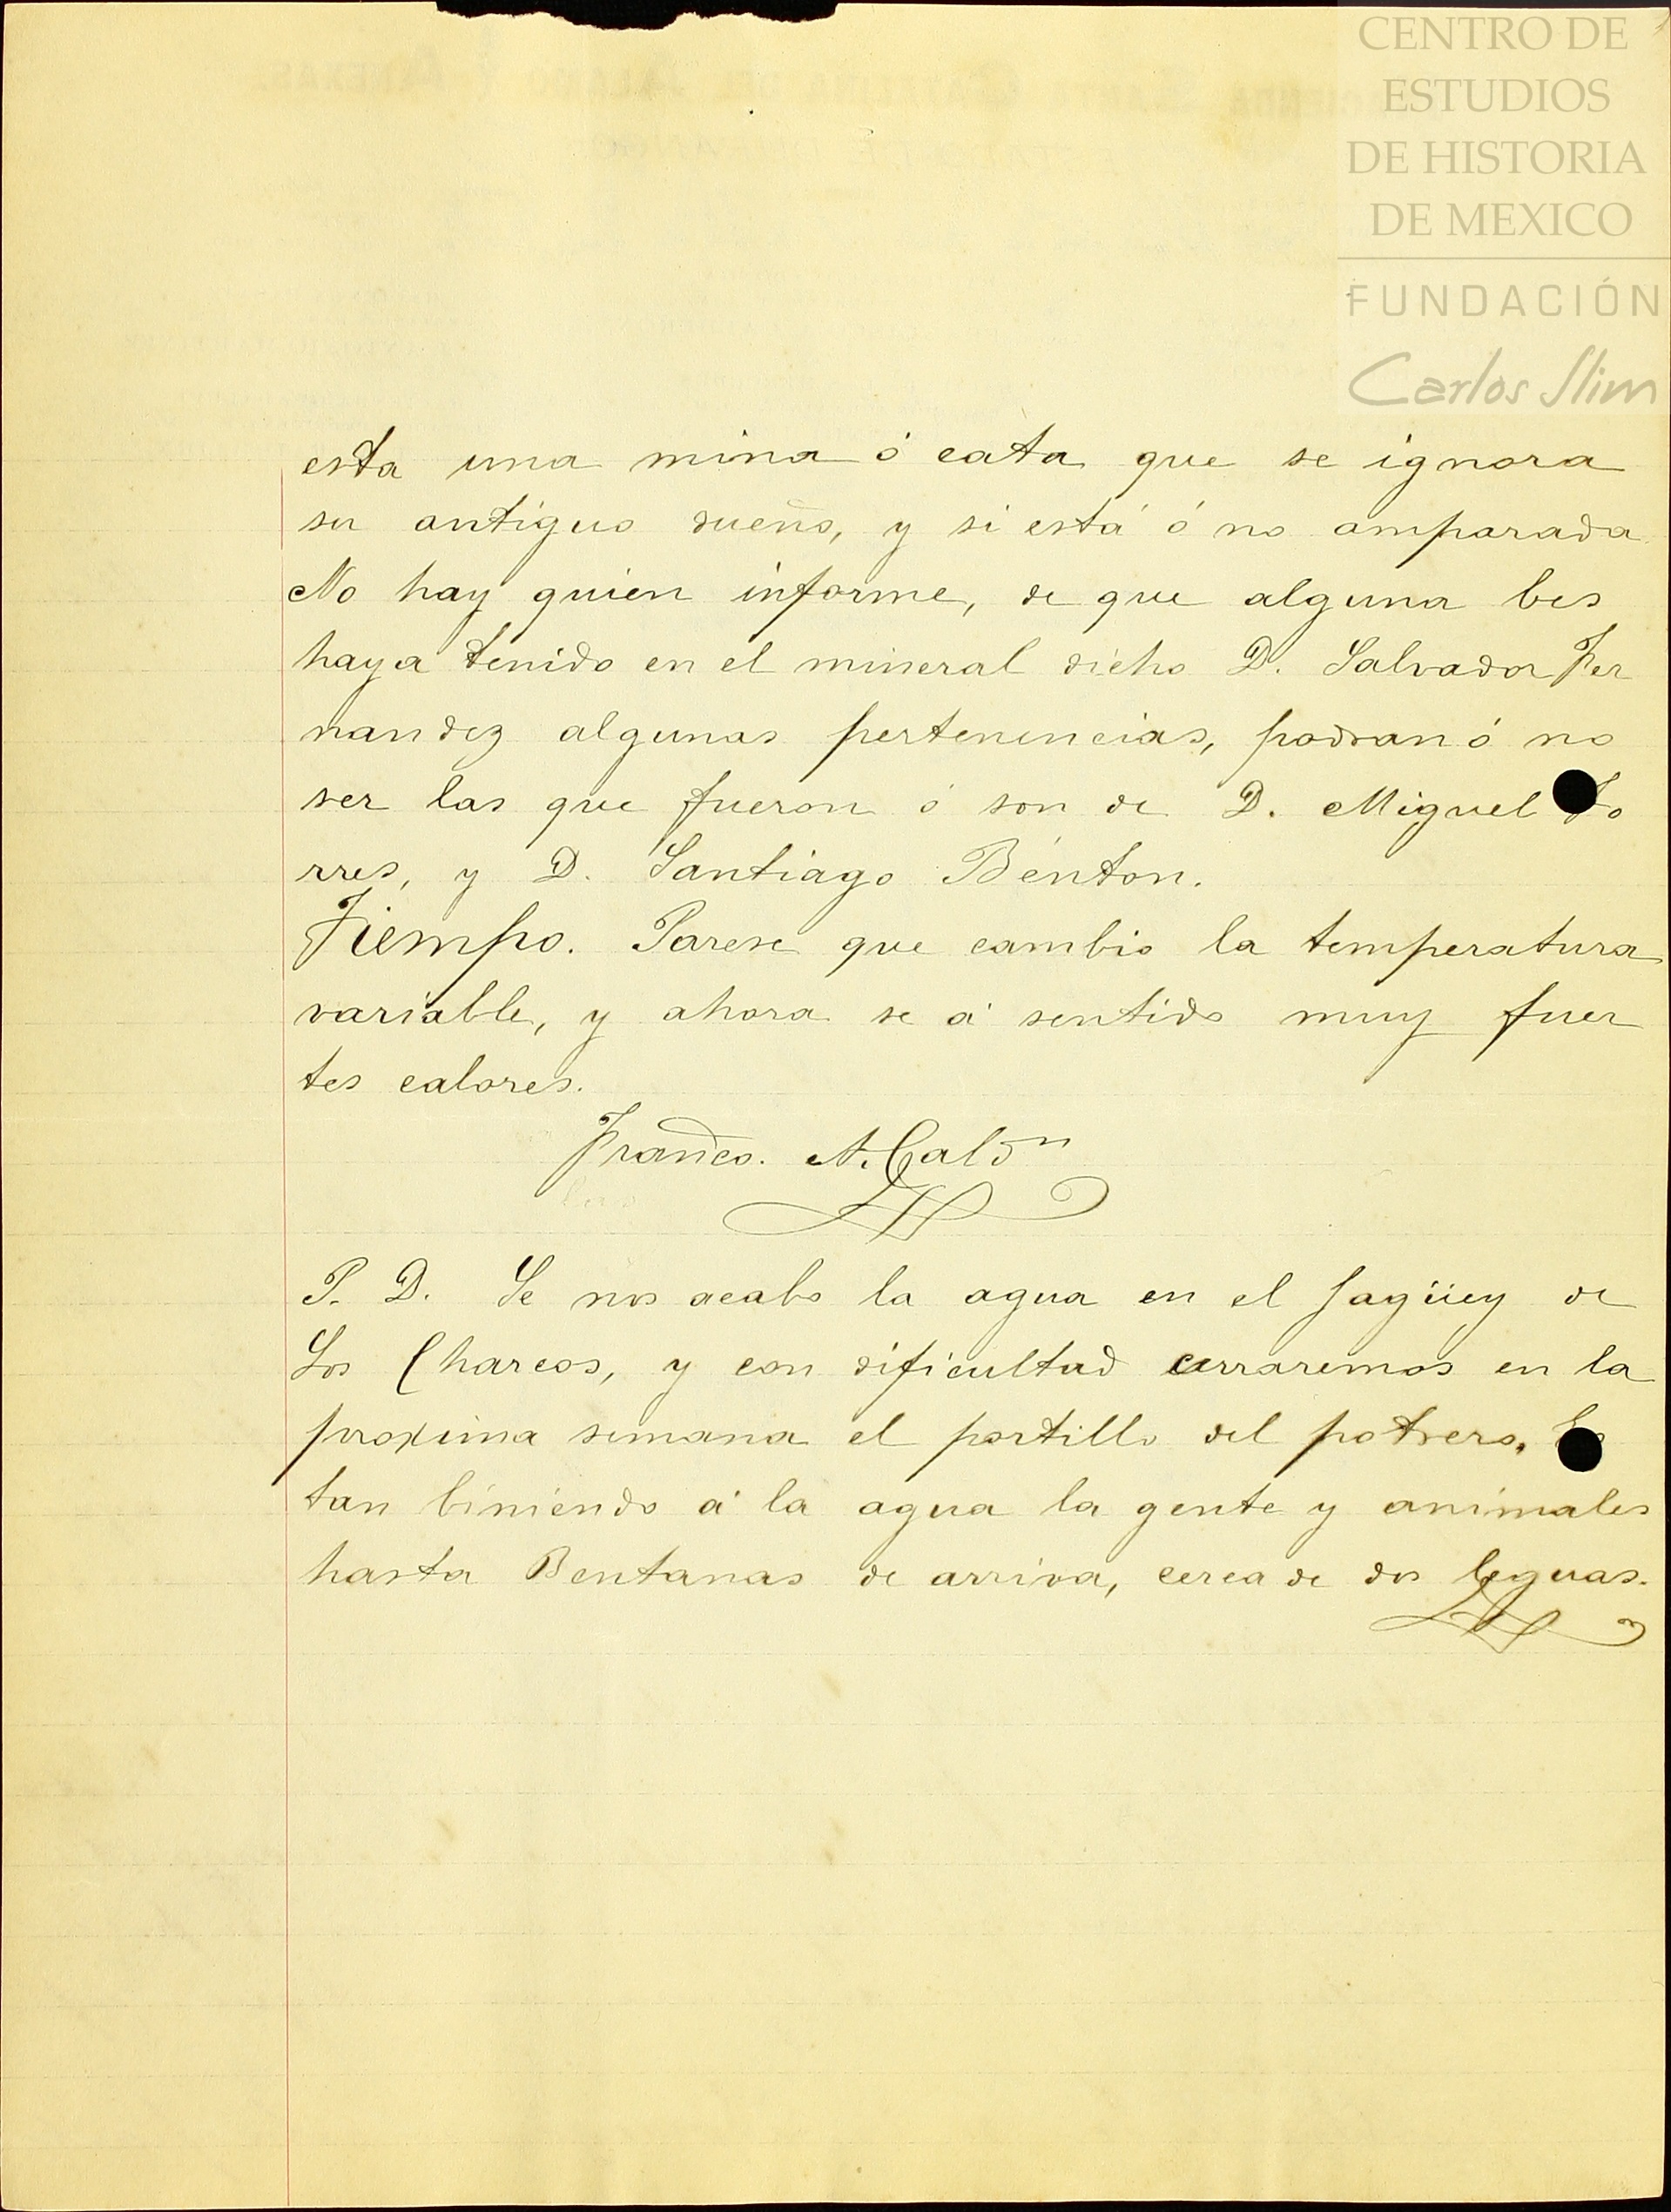 CENTRO DE
ESTUDIOS
DE HISTORIA
DE MEXICO
FUNDACIÓN
Carlos Slim
esta una mina ó cata que se ignora
su antiguo dueño, y si está ó no amparada.
No hay quien informe, de que alguna bes
haya tenido en el mineral dicho D. Salvador Fer
nandez algunas pertenencias, podran ó no
ser las que fueron ó son de D. Miguel To
rres, y D. Santiago Bénton.
Tiempo. Parese que cambio la temperatura
variable, y ahora se á sentido muy fuer
tes calores.
Franco. A. Caldn
P. D. Se nos acabo la agua en el Jagüey de
Los Charcos, y con dificultad cerraremos en la
proxima semana el portillo del potrero. Es
tan biniendo á la agua la gente y animales
hasta Bentanas de arriva, cerca de dos leguas.